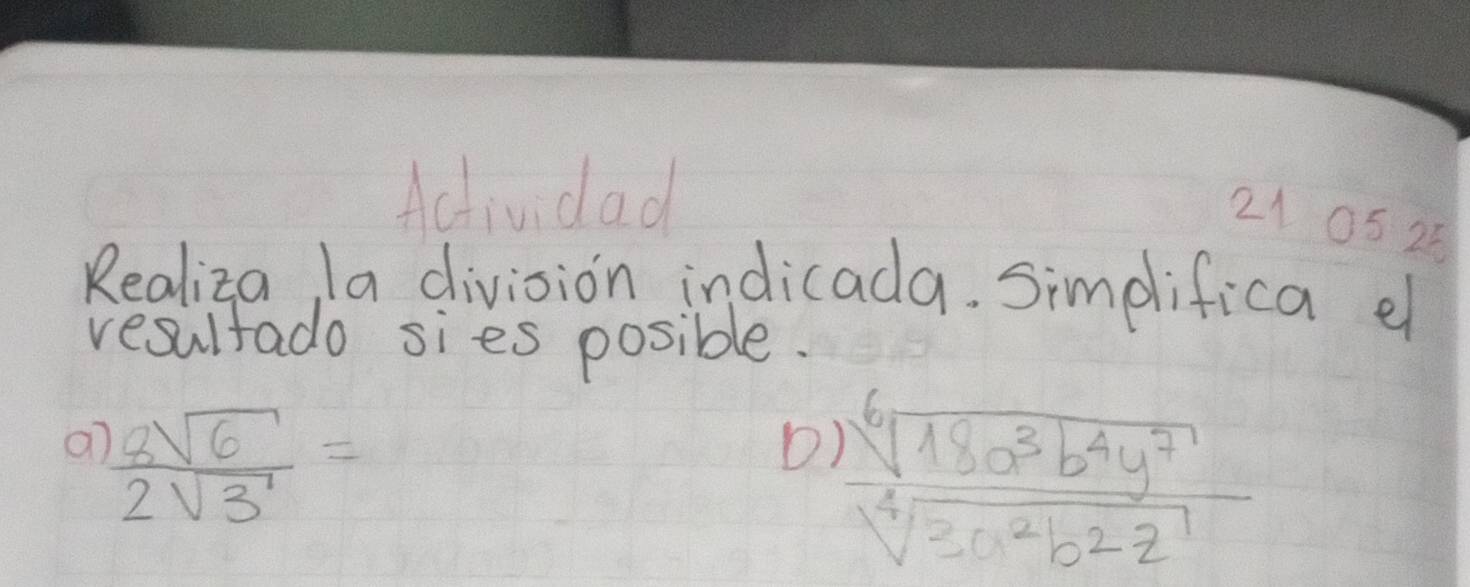 Actividad
21 05 25
Realiza la división indicada. Simplifica el
resultado si es posible.
a) 8√6 / 2√3 =
D) ⁶√18a³b⁴y⁷ / ⁴√3a²b²z